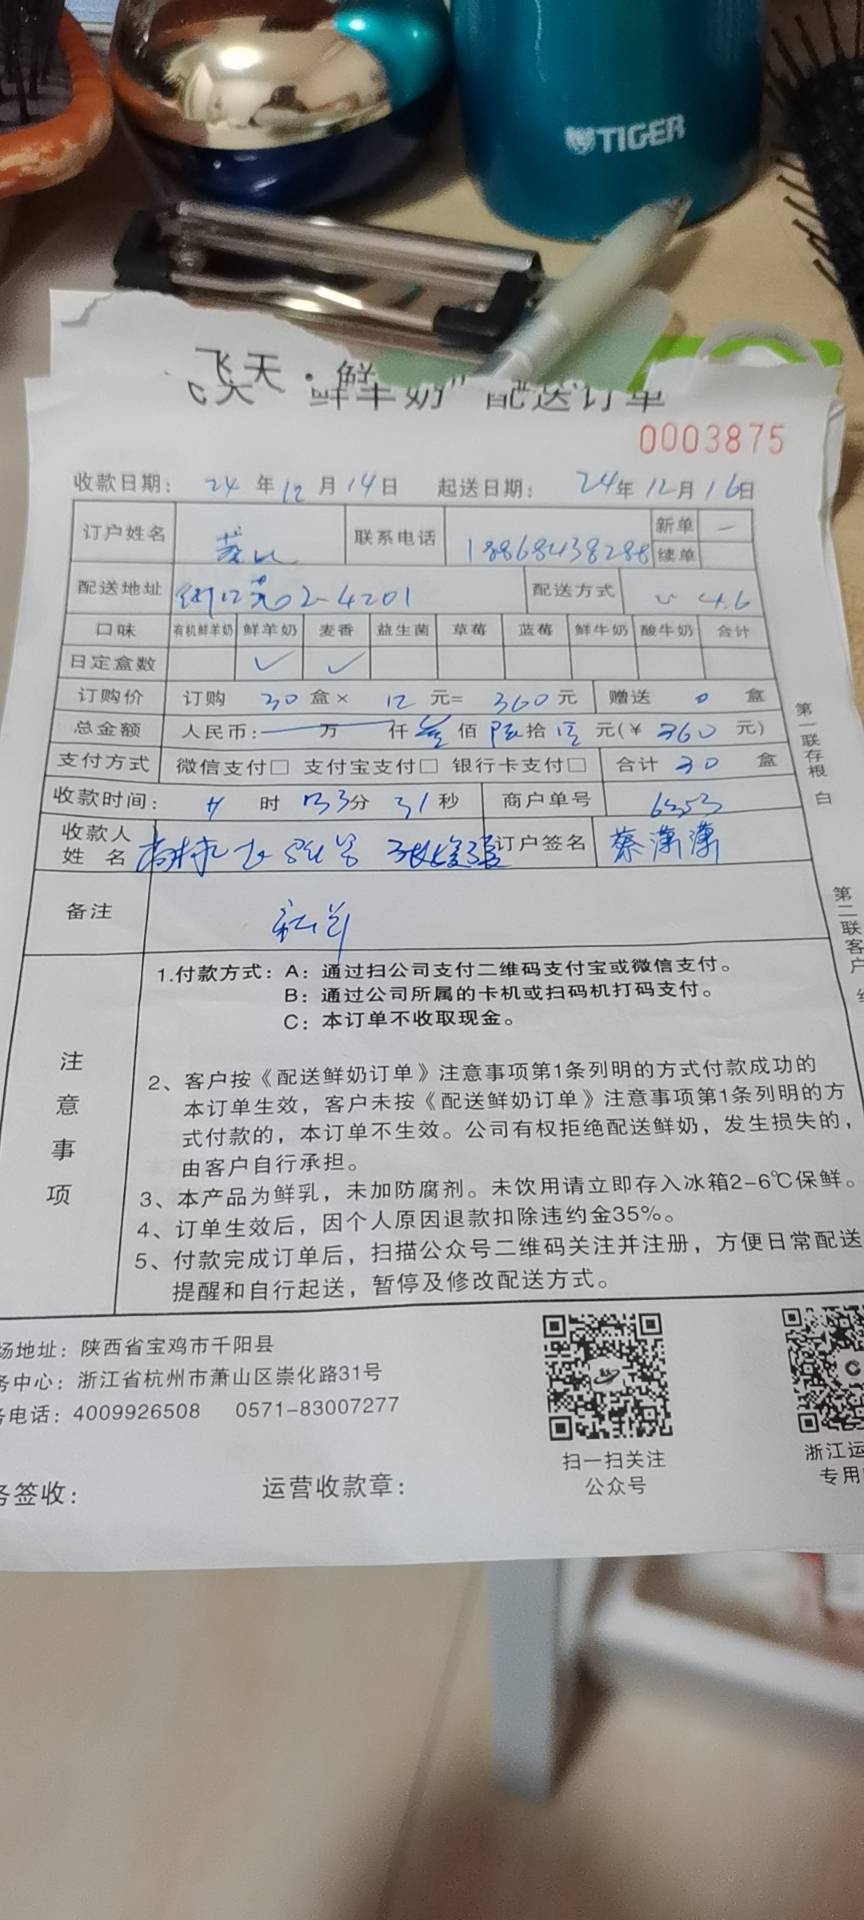 TIGER
飞天·鲜
飞天 鲜羊奶"配送订单
0003875
收款日期： 24 年 12 月 14 日 起送日期： 24 年 12 月 16 日
订户姓名 联系电话 18868438288 新单 一
续单
配送地址 2-4201 配送方式 4.6
口味 有机鲜羊奶 鲜羊奶 麦香 益生菌 草莓 蓝莓 鲜牛奶 酸牛奶 合计
日定盒数 ✓ ✓
订购价 订购 30 盒× 12 元= 360 元 赠送 0 盒
总金额 人民币： 万 仟 叁 佰 陆 拾 元(￥ 360 元)
支付方式 微信支付□ 支付宝支付□ 银行卡支付□ 合计 30 盒
收款时间： 时 分 31 秒 商户单号 6353
收款人
姓 名 订户签名 蔡潇潇
备注
注意事项
1.付款方式：A：通过扫公司支付二维码支付宝或微信支付。
B：通过公司所属的卡机或扫码机打码支付。
C：本订单不收取现金。
2、客户按《配送鲜奶订单》注意事项第1条列明的方式付款成功的
本订单生效，客户未按《配送鲜奶订单》注意事项第1条列明的方
式付款的，本订单不生效。公司有权拒绝配送鲜奶，发生损失的，
由客户自行承担。
3、本产品为鲜乳，未加防腐剂。未饮用请立即存入冰箱2-6℃保鲜。
4、订单生效后，因个人原因退款扣除违约金35%。
5、付款完成订单后，扫描公众号二维码关注并注册，方便日常配送
提醒和自行起送，暂停及修改配送方式。
第一联存根 白
第二联客户
场地址：陕西省宝鸡市千阳县
务中心：浙江省杭州市萧山区崇化路31号
务电话：4009926508 0571-83007277
扫一扫关注
公众号
浙江运
专用
务签收：
运营收款章：